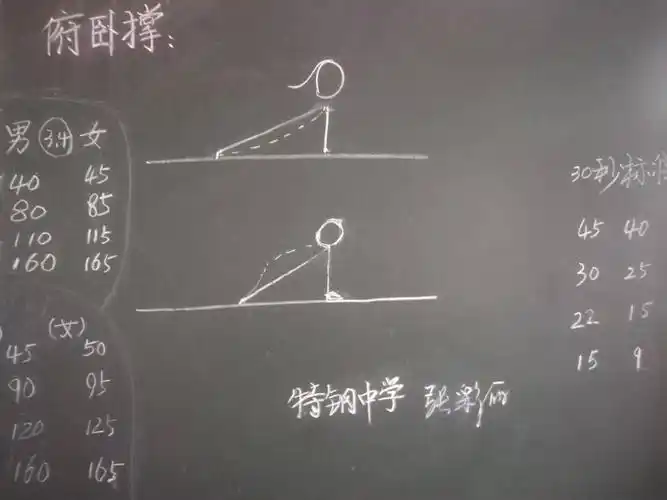 俯卧撑:
男 34 女
40 45
80 85
110 115
160 165
(女)
45 50
90 95
120 125
160 165
30秒标
45 40
30 25
22 15
15 9
特钢中学 张彩